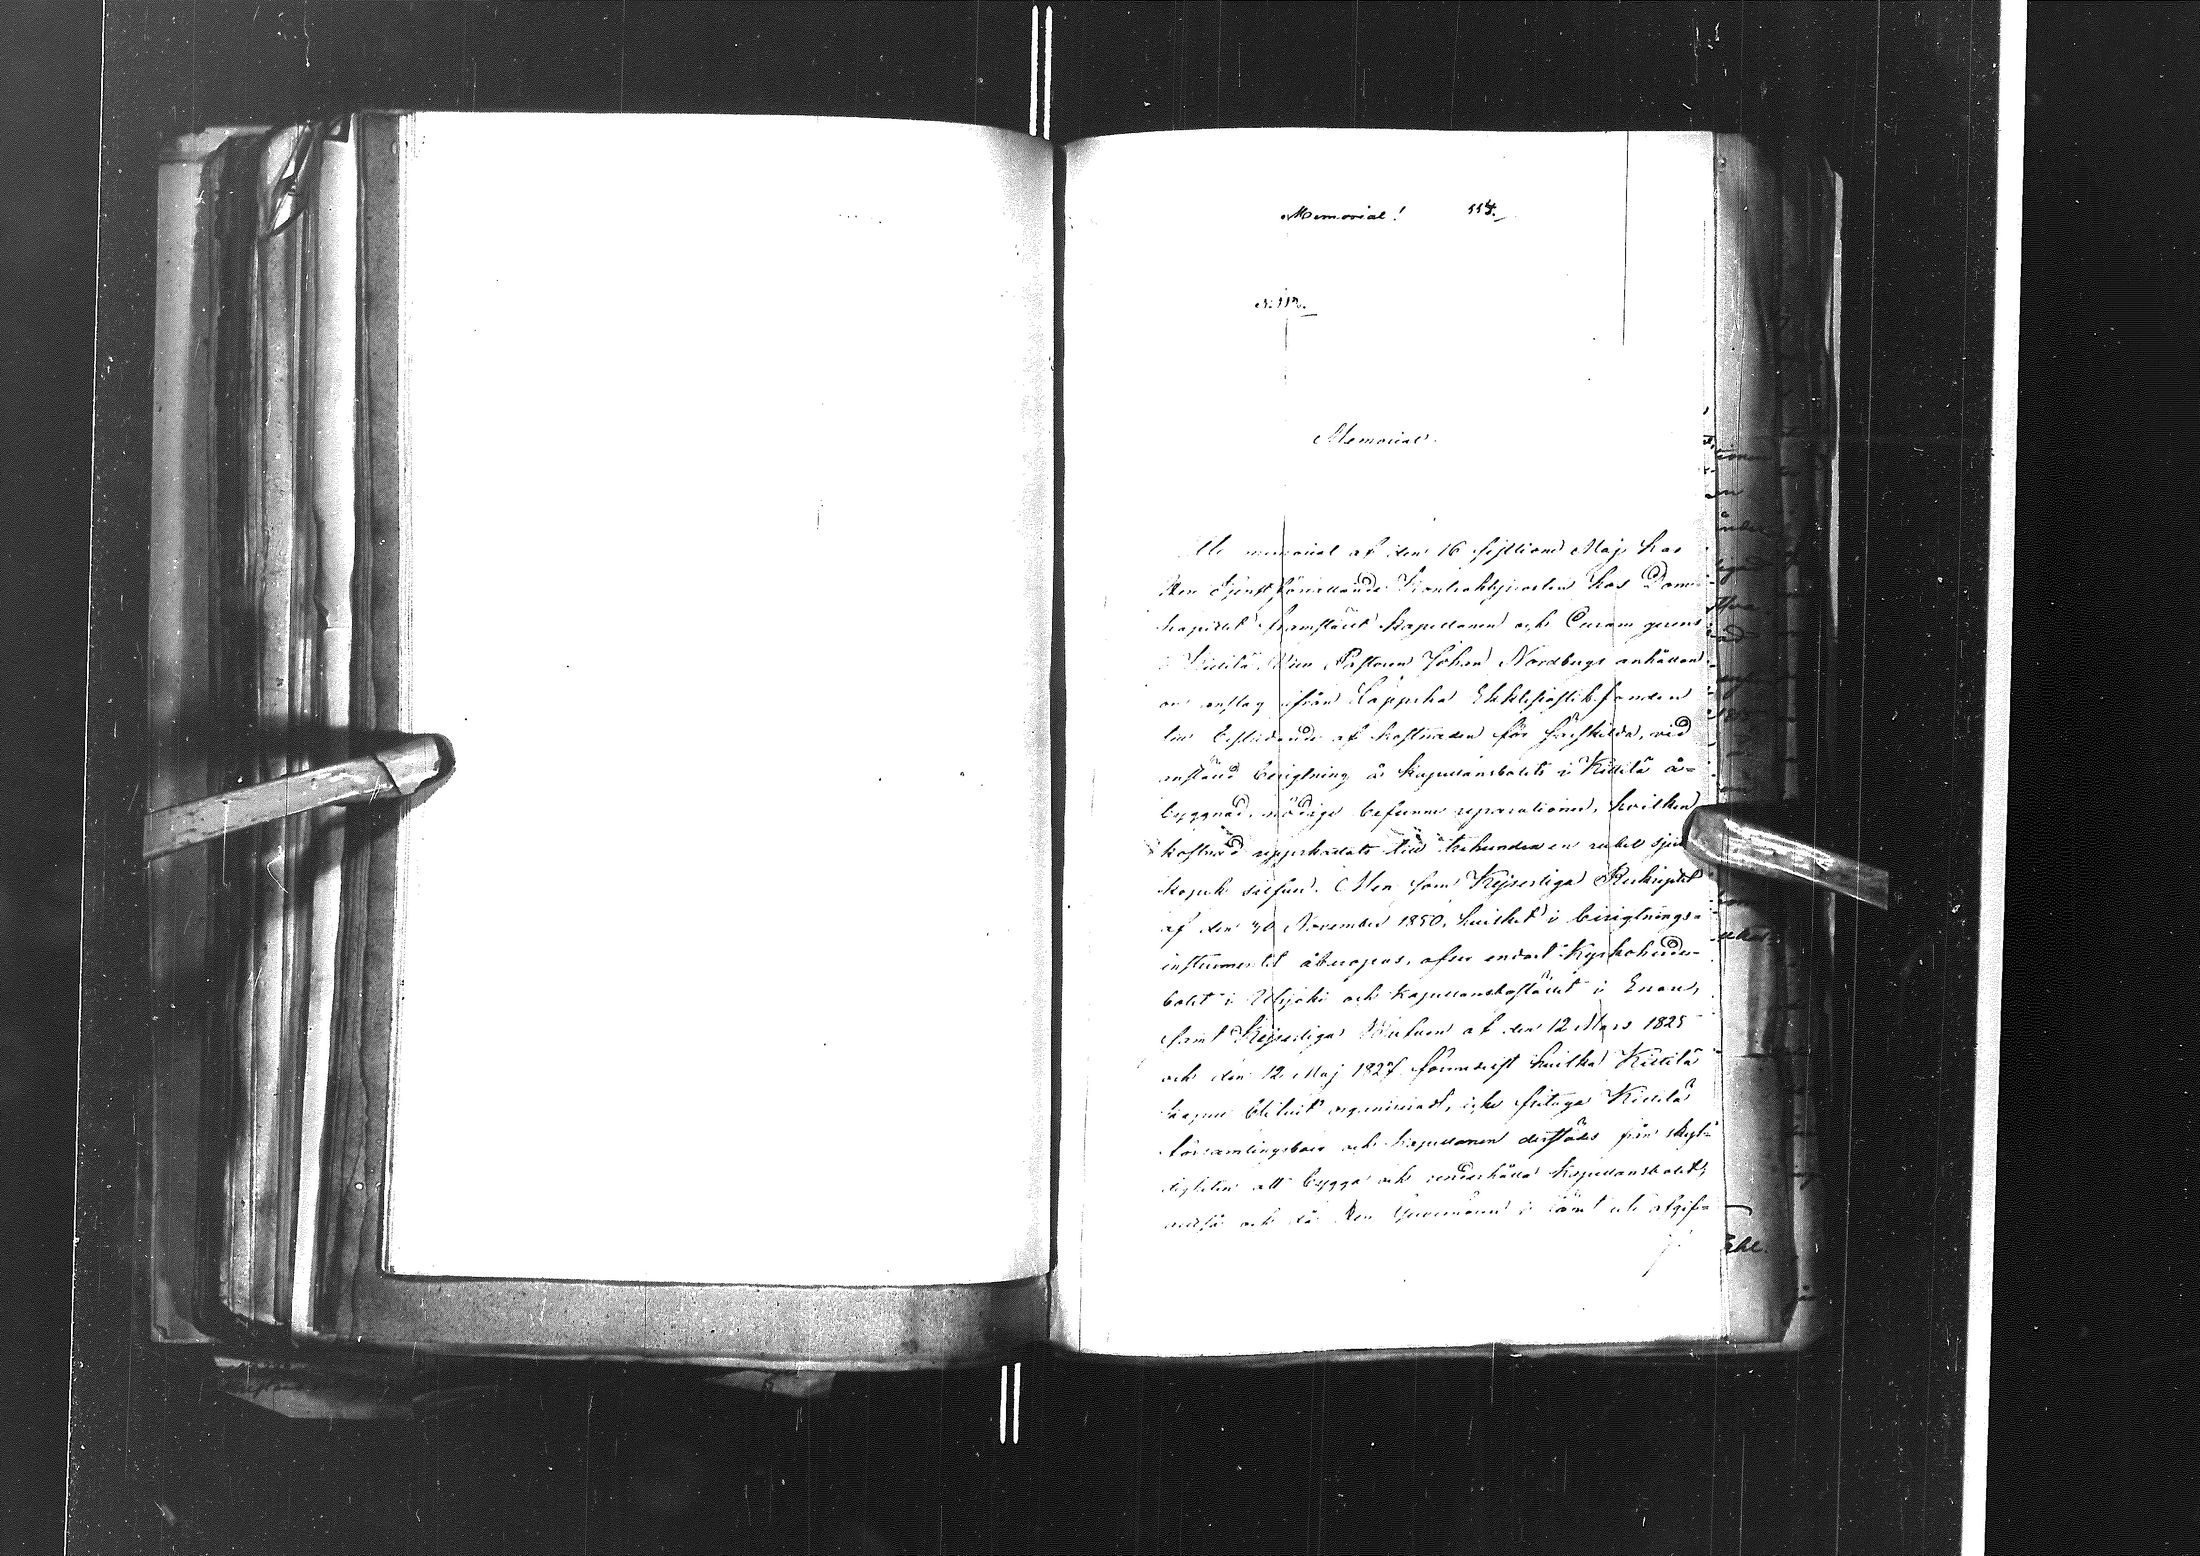 Memorial! 117.
N. 112.
Memorial.
memorial af den 16 sistlidne Maj har
Ten Tjenstförrättande Kontraktsprosten hos Dom-
kapitlet framställt Kapellanen och Curam gerens
i Kittilä, Vice Pastoren Johan Nordbergs anhållan
om anslag ifrån Lappska Ecklesiastikfonden
till bestridande af kostnaden för särskilda, vid
anstäld besigtning å Kapellansbolets i Kittilä å-
byggnad, nödige befunne reparationer, hvilken
kostnad uppskattats till tvåhundra en rubel sju
kopek silfver. Men som Kejserliga Reskriptet
af den 30 November 1850, hvilket i besigtnings-
instrumentet åberopas, afser endast Kyrkoherde-
bolet i Utsjoki och Kapellansbostället i Enare,
samt Kejserliga Brefven af den 12 Mars 1825
och den 12 Maj 1827 hvilka Kittilä
blifvit organiseradt, icke fritaga Kittilä
församlingsboer och kapellanen derstädes från skyl-
digheten att bygga och underhålla Kapellansbolet,
altså och då Ten